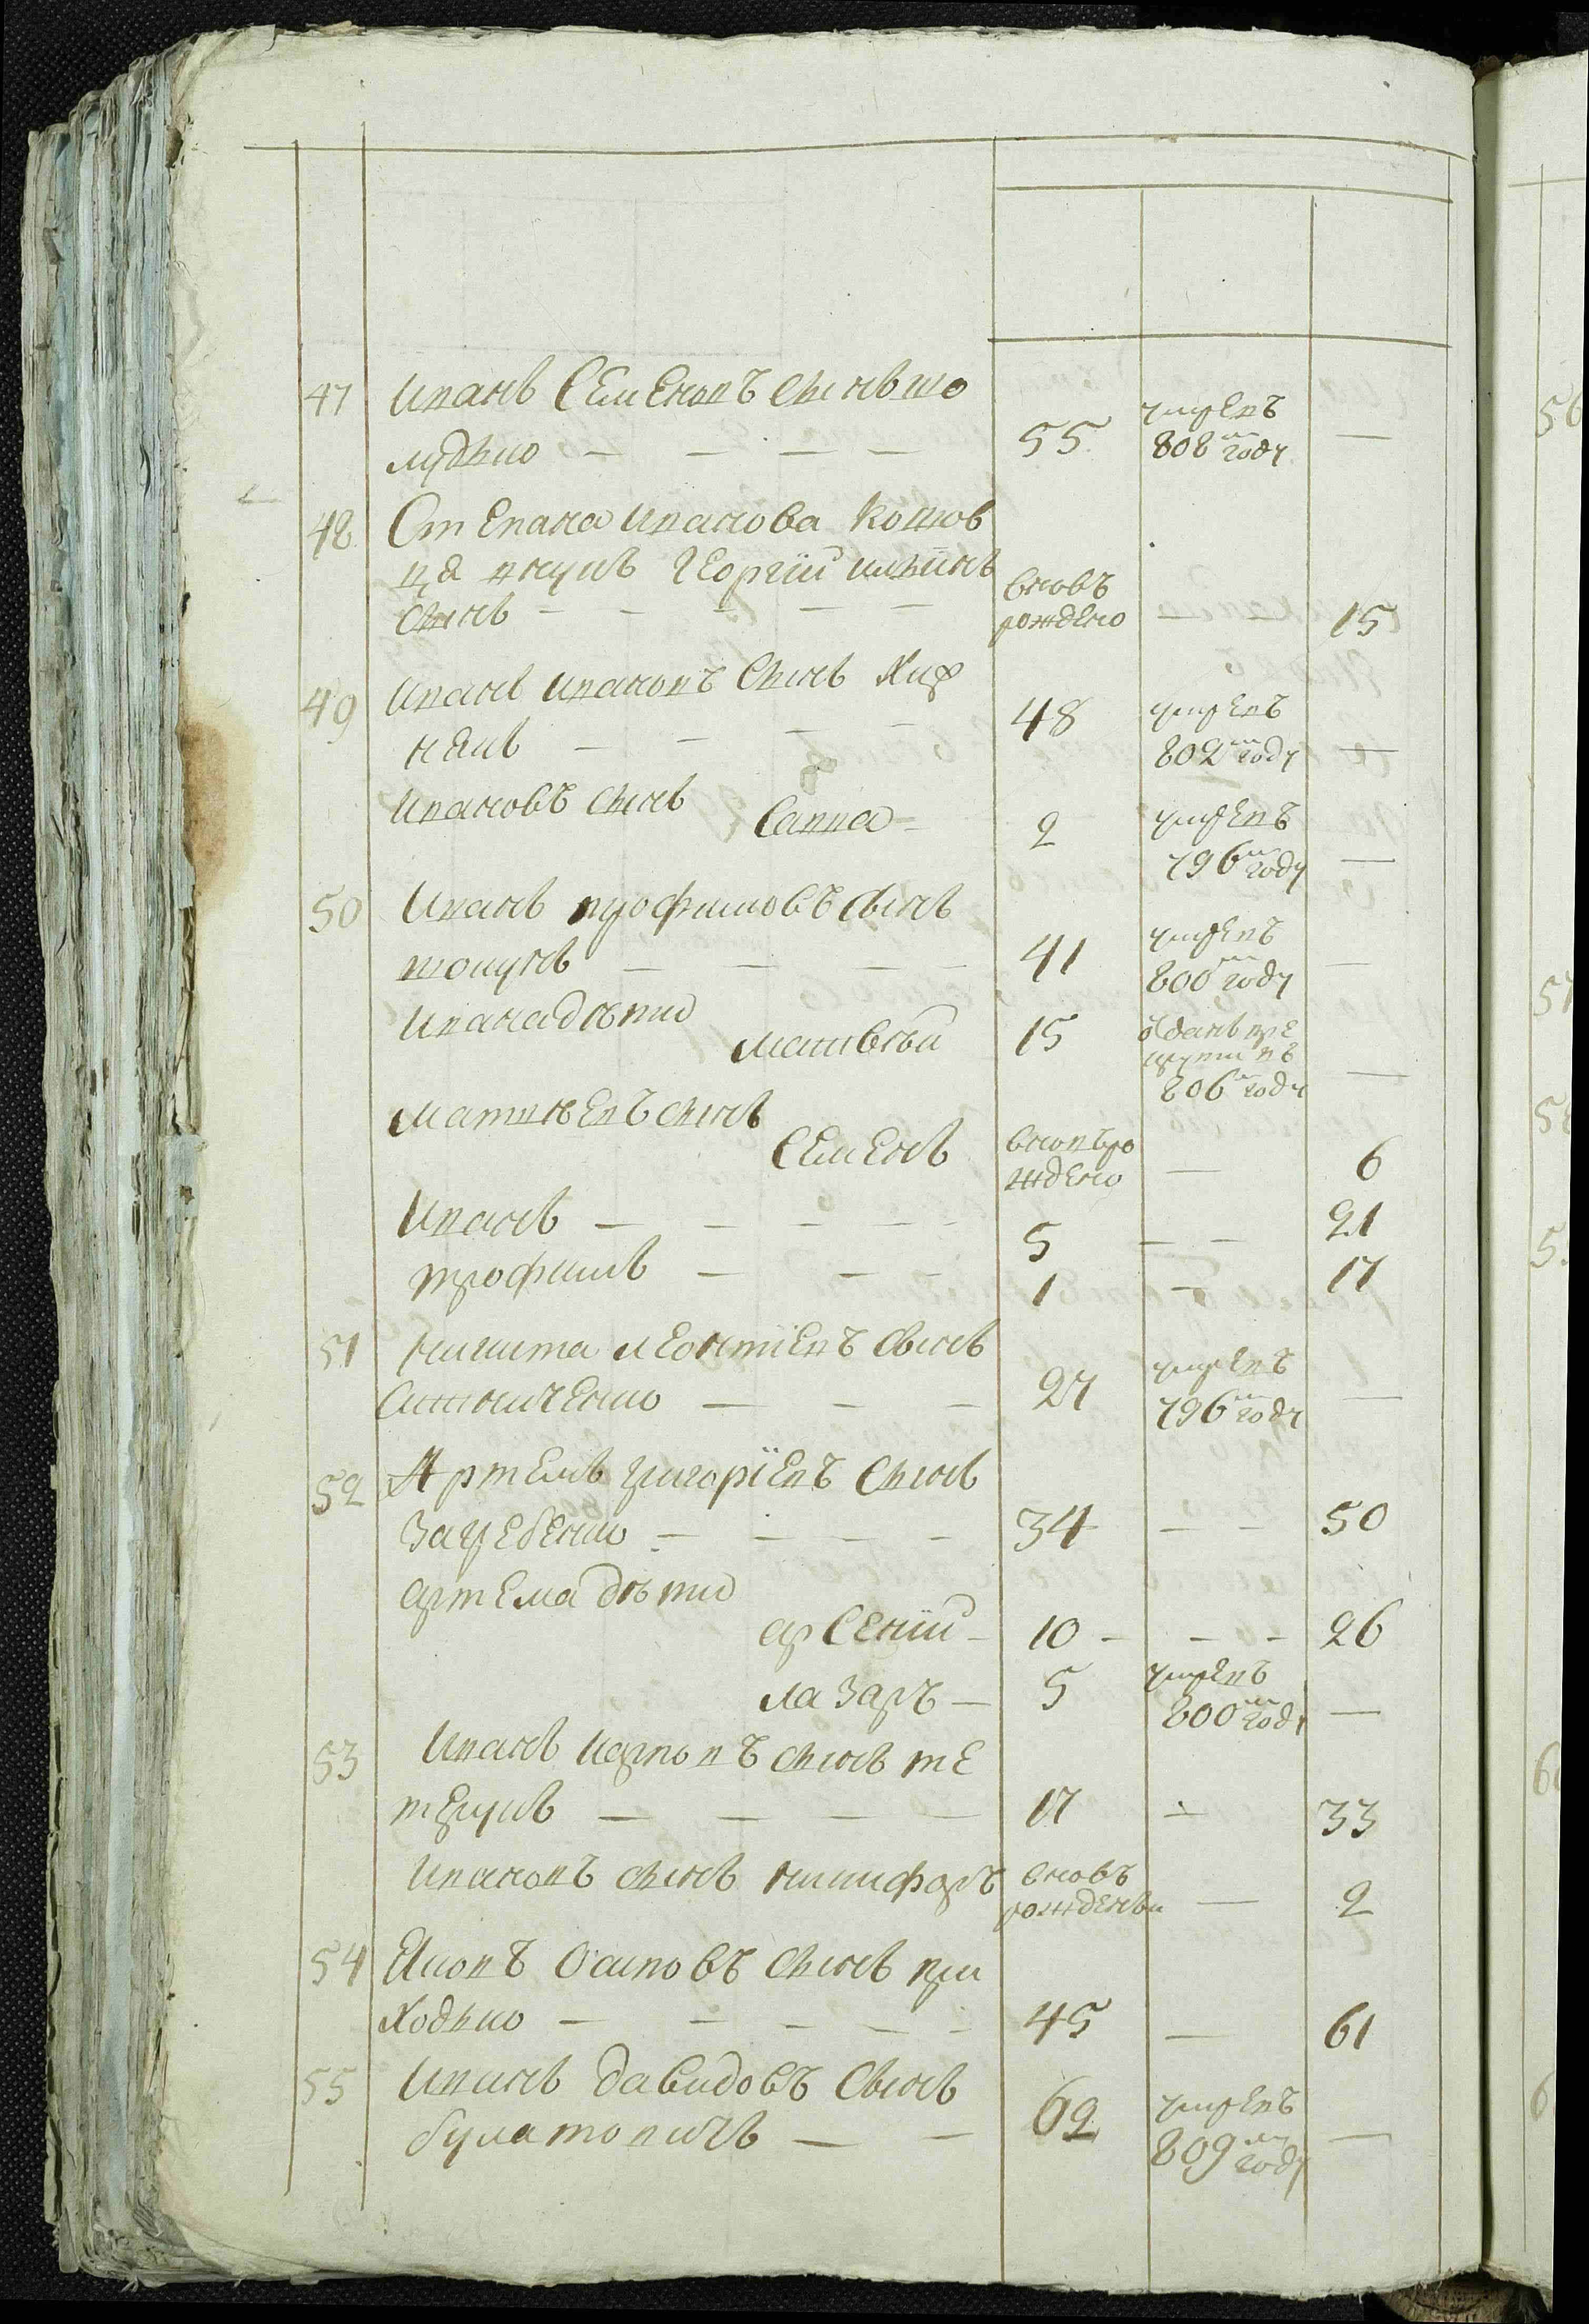 47 Иванъ Семеновъ сынъ шо
лудько — — — — 55 умревъ 808м году —
48 Степана Иванова Кошов
ца внукъ Георгий Ильинъ
сынъ — — — — — вновъ рождено — — 15
49 Иванъ Ивановъ сынъ Хир
неıй — — — — 48 умревъ 802м году —
Ивановъ сынъ
Савва — 2 умревъ 796м году —
50 Иванъ трофимовъ сынъ
товкунъ — — — — 41 умревъ 800м году —
Ивана дѣти
матвѣй 15 отданъ в рекруты въ 806м году —
матвѣевъ сынъ
Семенъ вновъ рождено — 6
Иванъ — — — — — 5 — — 21
трофимъ — — — 1 — 17
51 Никита леонтиевъ сынъ
Синниченко — — — 27 умревъ 796м году —
52 Артемъ григорїевъ сынъ
Загребенко — — — — 34 — — 50
артема дѣти
арсенїй — 10 — — — 26
лазаръ — 5 умревъ 800м году —
53 Иванъ карповъ сынъ те
терукъ — — — — 17 — 33
Ивановъ сынъ никифоръ вновъ рожденъи — 2
54 Яковъ Осиповъ сынъ при
ходько — — — — — 45 — 61
55 Иванъ давидовъ сынъ
булатовичъ — — 62 умревъ 809м году —